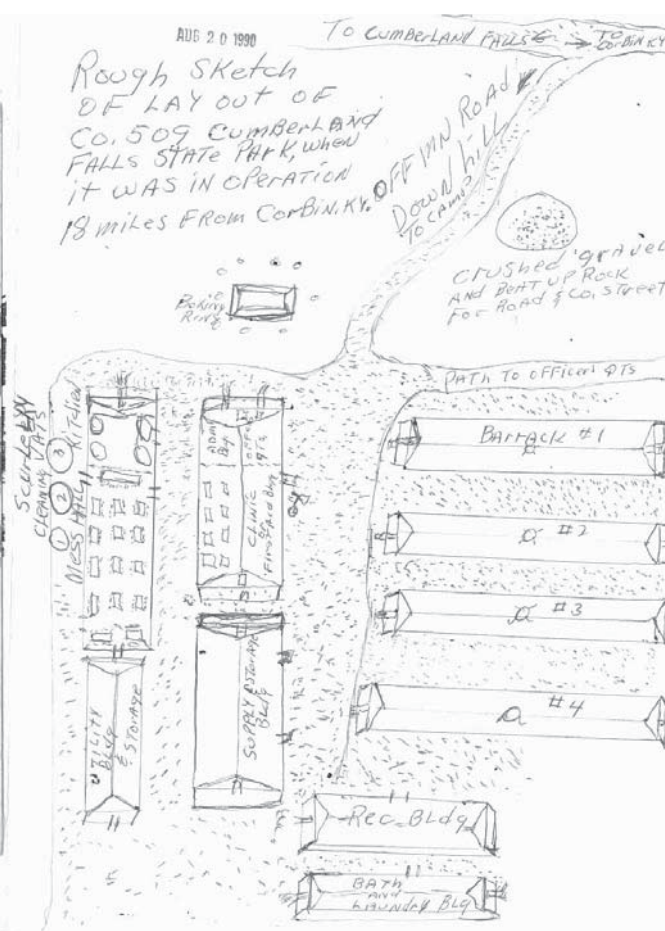 AUG 20 1990
TO CUMBERLAND FALLS
TO CORBIN KY
Rough Sketch
OF LAY OUT OF
CO. 509 CUMBERLAND
FALLS STATE PARK, WHEN
IT WAS IN OPERATION
18 MILES FROM CORBIN, KY.
OFF MN ROAD
DOWN hill
TO CAMP
CRUSHED gravel
AND BEAT UP ROCK
FOR ROAD & CO. STREET
BOXING
RING
PATH TO OFFICERS QTS
CLEANING VATS
1
2
3
MESS HALL
KITCHEN
CLINIC
&
FIRST AID BLDG
BARRACK #1
#2
#3
#4
UTILITY
BLDG
& STORAGE
SUPPLY & STORAGE
BLDG
Rec. BLdg
BATH
AND
LAUNDRY BLDG